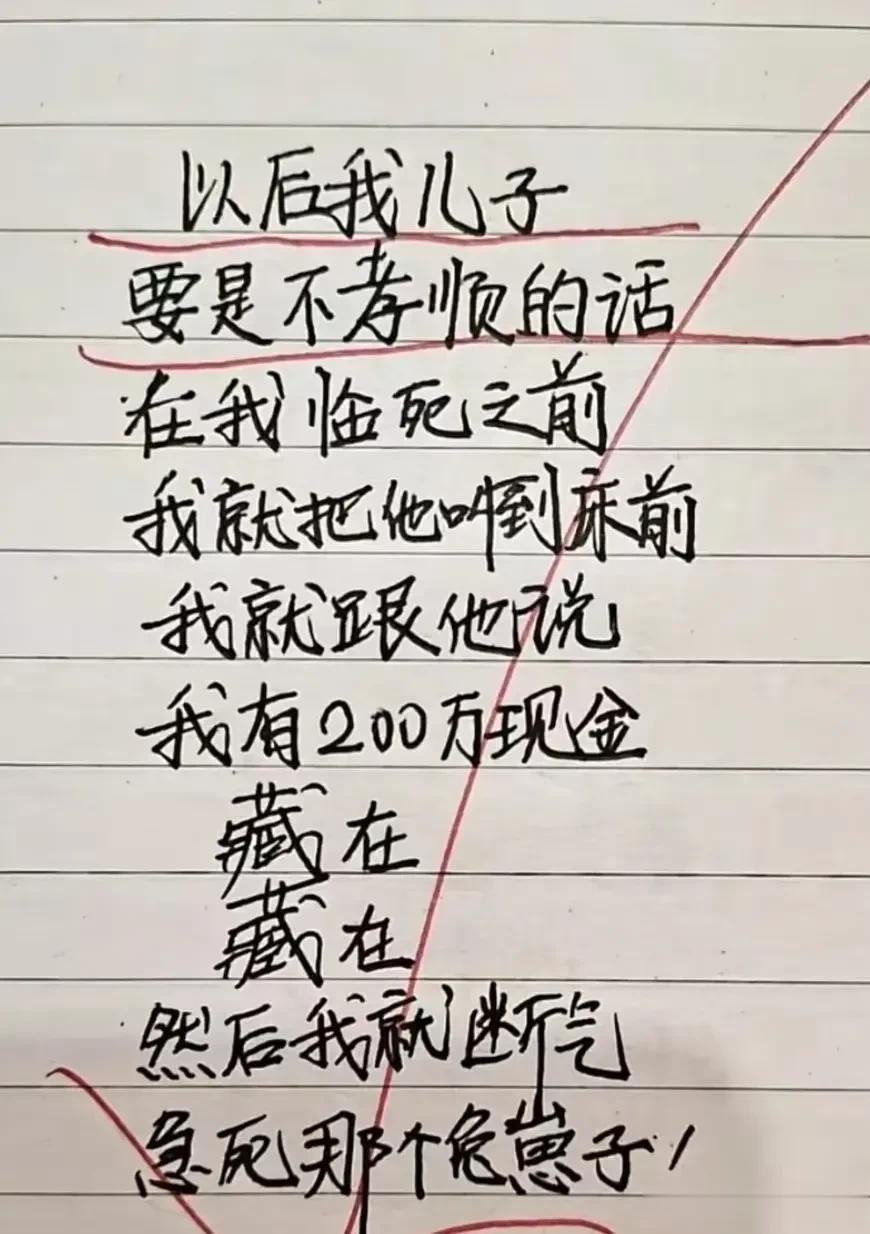 以后我儿子
要是不孝顺的话
在我临死之前
我就把他叫到床前
我就跟他说
我有200万现金
藏在
藏在
然后我就断气
急死那个兔崽子!